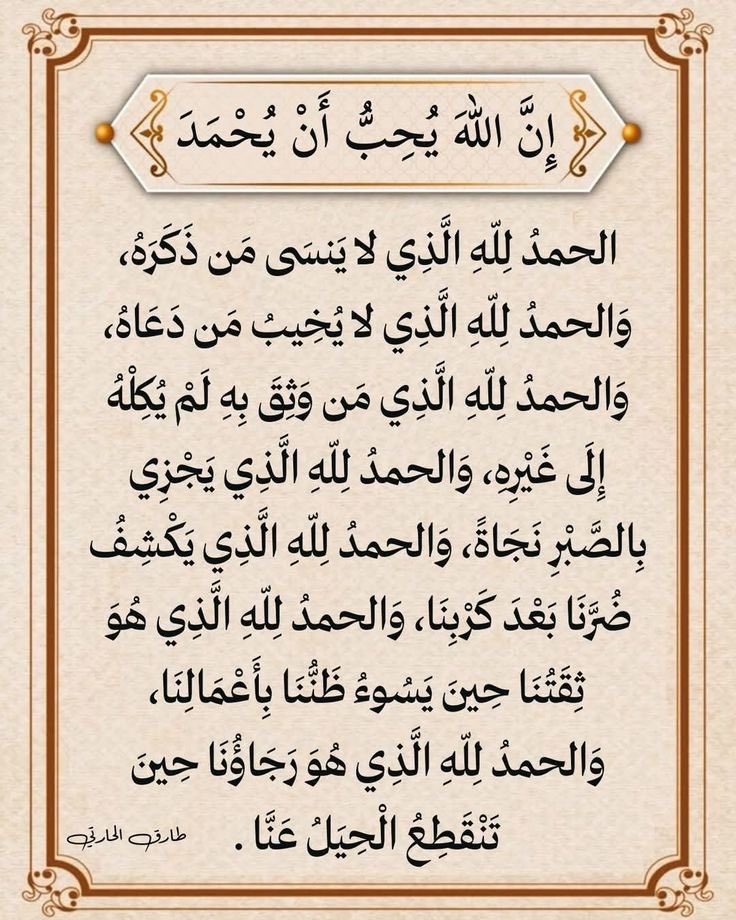 إِنَّ اللهَ يُحِبُّ أَنْ يُحْمَدَ
الحمدُ لِلّهِ الَّذِي لا يَنسَى مَن ذَكَرَهُ،
وَالحمدُ لِلّهِ الَّذِي لا يُخِيبُ مَن دَعَاهُ،
وَالحمدُ لِلّهِ الَّذِي مَن وَثِقَ بِهِ لَمْ يُكِلْهُ
إِلَى غَيْرِهِ، وَالحمدُ لِلّهِ الَّذِي يَجْزِي
بِالصَّبْرِ نَجَاةً، وَالحمدُ لِلّهِ الَّذِي يَكْشِفُ
ضُرَّنَا بَعْدَ كَرْبِنَا، وَالحمدُ لِلّهِ الَّذِي هُوَ
ثِقَتُنَا حِينَ يَسُوءُ ظَنُّنَا بِأَعْمَالِنَا،
وَالحمدُ لِلّهِ الَّذِي هُوَ رَجَاؤُنَا حِينَ
تَنْقَطِعُ الْحِيَلُ عَنَّا .
طارق الحارثي